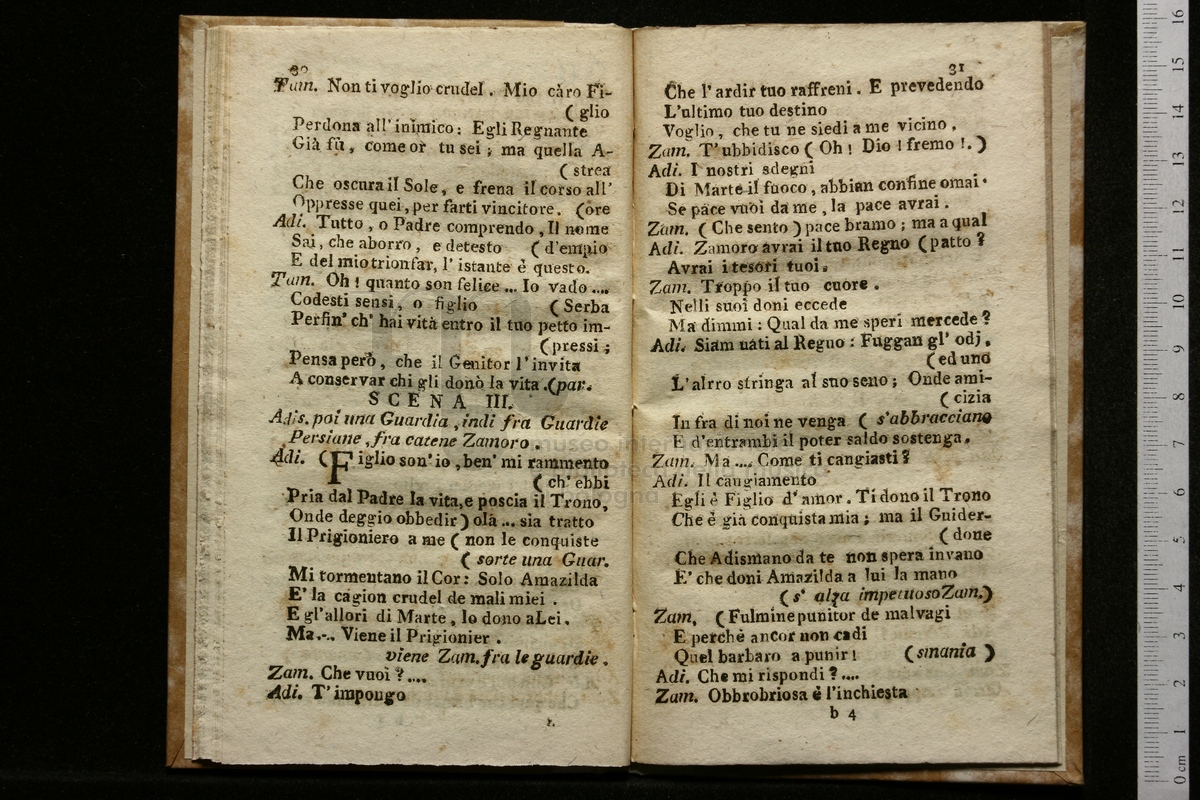 30
Tam. Non ti voglio crudel. Mio caro Fi-
( glio
Perdona all' inimico: Egli Regnante
Già fù, come or tu sei; ma quella A-
( strea
Che oscura il Sole, e frena il corso all'
Oppresse quei, per farti vincitore. (ore
Adi. Tutto, o Padre comprendo, Il nome
Sai, che aborro, e detesto ( d'empio
E del mio trionfar, l' istante è questo.
Tam. Oh! quanto son felice... Io vado ....
Codesti sensi, o figlio ( Serba
Perfin' ch' hai vità entro il tuo petto im-
(pressi;
Pensa però, che il Genitor l' invita
A conservar chi gli donò la vita .(par.
SCENA III.
Adis. poi una Guardia, indi fra Guardie
Persiane, fra catene Zamoro.
Adi. (Figlio son' io, ben' mi rammento
( ch' ebbi
Pria dal Padre la vita, e poscia il Trono,
Onde deggio obbedir) olà ... sia tratto
Il Prigioniero a me ( non le conquiste
( sorte una Guar.
Mi tormentano il Cor: Solo Amazilda
E' la cagion crudel de mali miei .
E gl'allori di Marte, Io dono a Lei.
Ma.-.. Viene il Prigionier .
viene Zam. fra le guardie.
Zam. Che vuoi ?....
Adi. T' impongo
31
Che l' ardir tuo raffreni. E prevedendo
L'ultimo tuo destino
Voglio, che tu ne siedi a me vicino.
Zam. T'ubbidisco ( Oh! Dio! fremo!. )
Adi. I nostri sdegni
Di Marte il fuoco, abbian confine omai.
Se pace vuoi da me, la pace avrai.
Zam. ( Che sento ) pace bramo; ma a qual
Adi. Zamoro avrai il tuo Regno (patto?
Avrai i tesori tuoi.
Zam. Troppo il tuo cuore.
Nelli suoi doni eccede
Ma dimmi: Qual da me speri mercede?
Adi. Siam nati al Regno: Fuggan gl' odj.
(ed uno
L'alrro stringa al suo seno; Onde ami-
( cizia
In fra di noi ne venga ( s'abbracciano
E d'entrambi il poter saldo sostenga.
Zam. Ma .... Come ti cangiasti?
Adi. Il cangiamento
Egli è Figlio d' amor. Ti dono il Trono
Che è già conquista mia; ma il Guider-
( done
Che Adismano da te non spera invano
E' che doni Amazilda a lui la mano
( s' alza impetuoso Zam.)
Zam. (Fulmine punitor de malvagi
E perchè ancor non cadi
Quel barbaro a punir! (smania )
Adi. Che mi rispondi ?....
Zam. Obbrobriosa è l'inchiesta
b 4